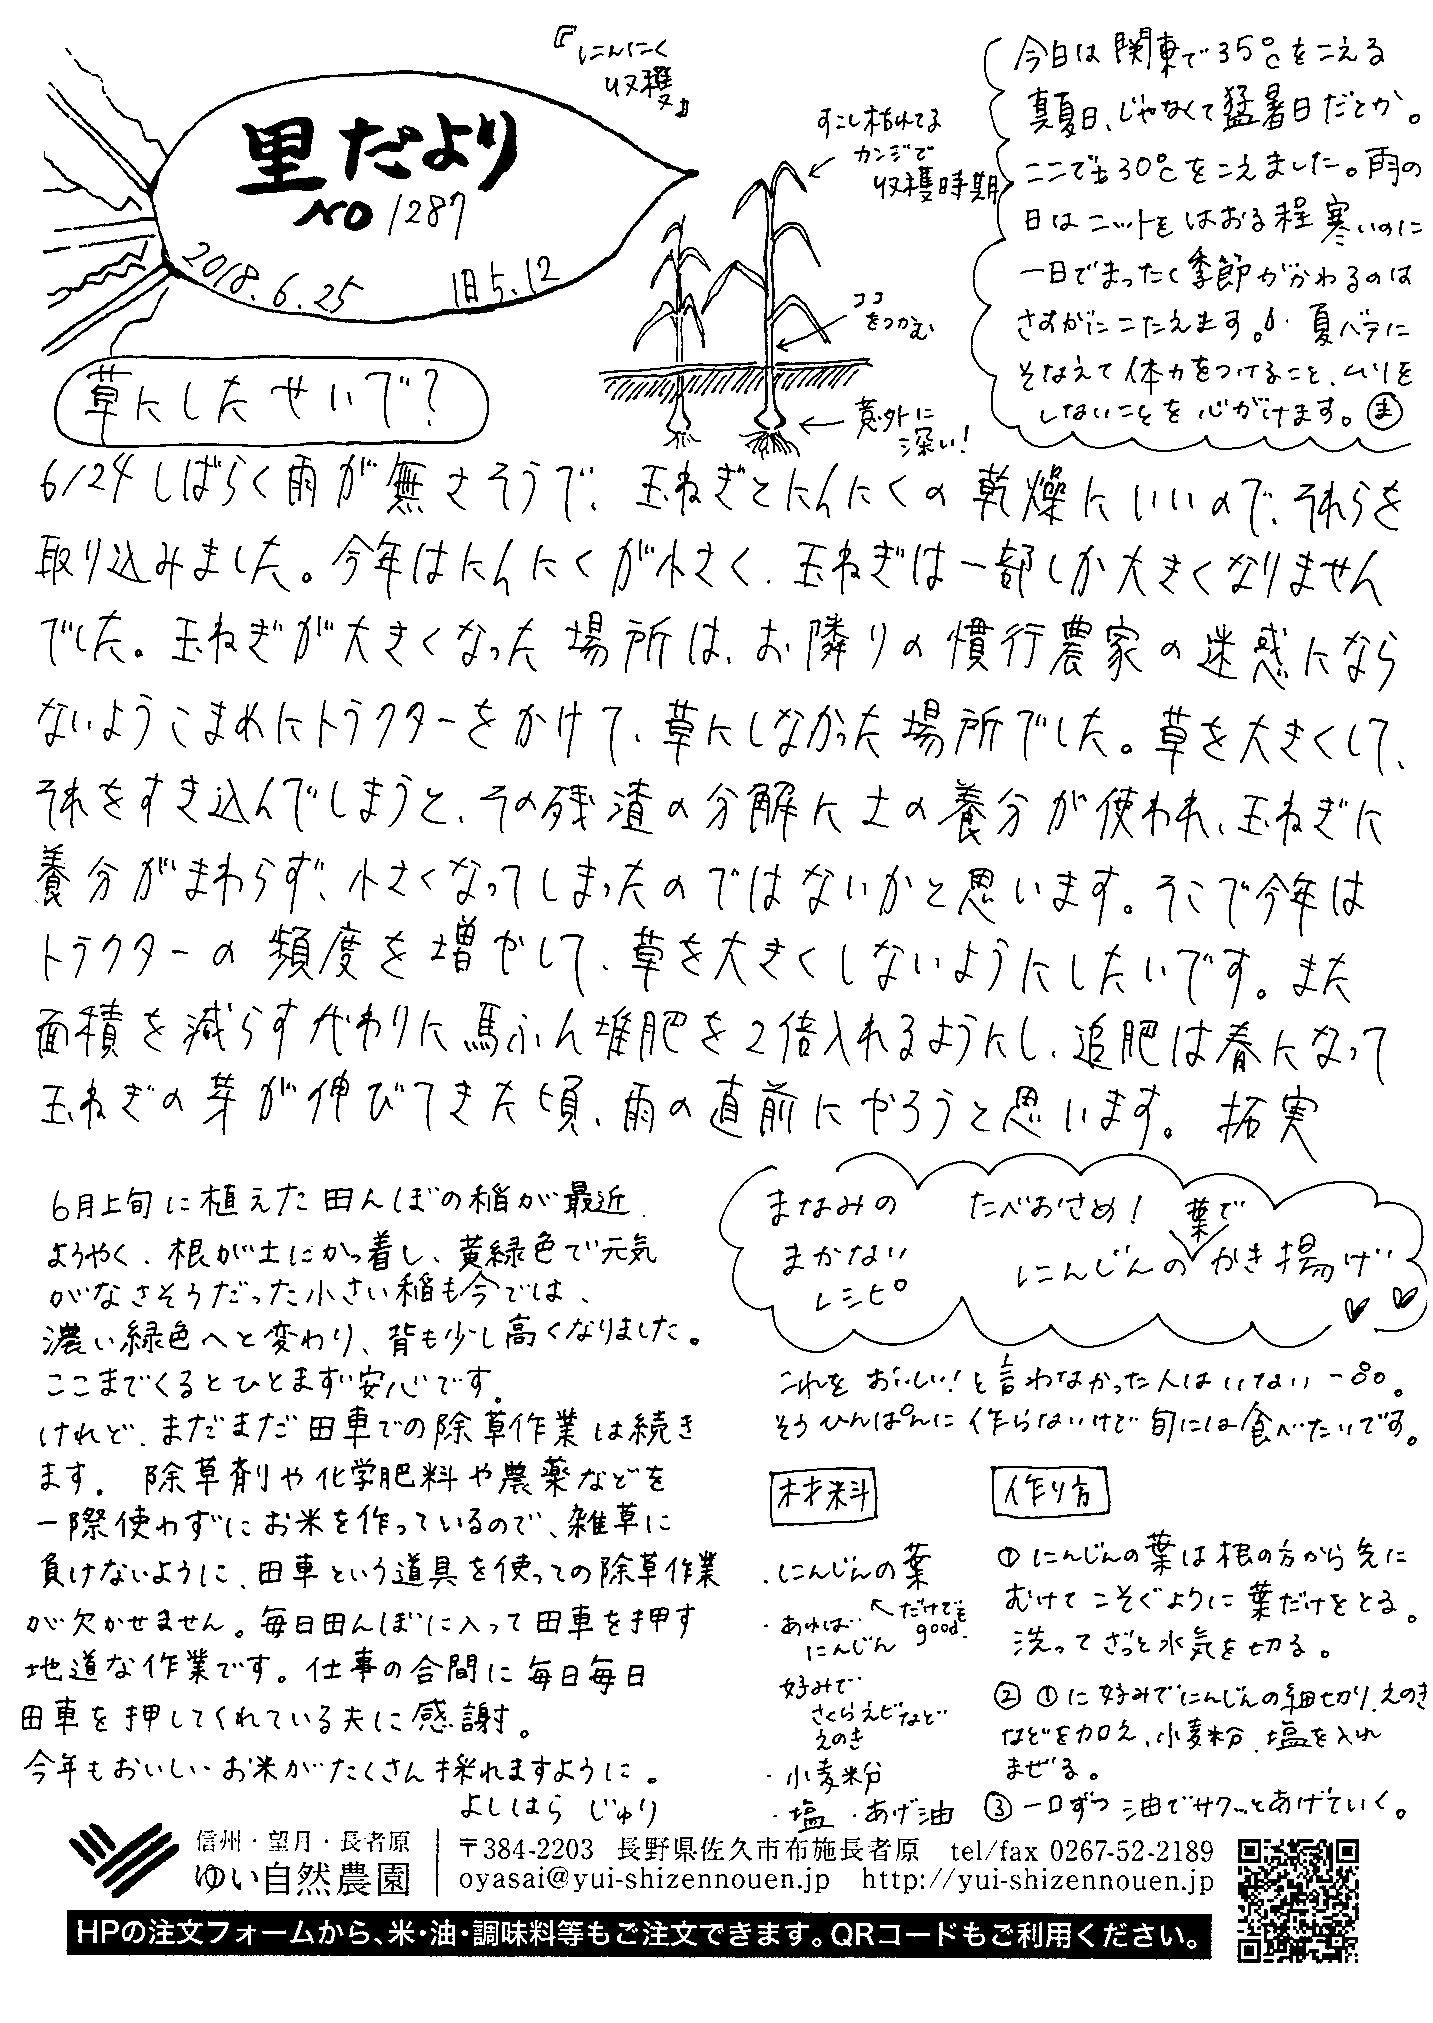 里だより
NO 1287
2018.6.25 旧5.12
『にんにく
収穫』
すこし枯れてる
カンジで
収穫時期
ココ
をつかむ
意外に
深い!
今日は関東で35℃をこえる
真夏日、じゃなくて猛暑日だとか。
ここでも30℃をこえました。雨の
日はニットをはおる程寒いのに
一日でまったく季節がかわるのは
さすがにこたえます。夏バテに
そなえて体力をつけること、ムリを
しないことを心がけます。ま
草にしたせいで?
6/24 しばらく雨が無さそうで、玉ねぎとにんにくの乾燥にいいので、それらを
取り込みました。今年はにんにくが小さく、玉ねぎは一部しか大きくなりません
でした。玉ねぎが大きくなった場所は、お隣りの慣行農家の迷惑になら
ないようこまめにトラクターをかけて、草にしなかった場所でした。草を大きくして、
それをすき込んでしまうと、その残渣の分解に土の養分が使われ、玉ねぎに
養分がまわらず、小さくなってしまったのではないかと思います。そこで今年は
トラクターの頻度を増やして、草を大きくしないようにしたいです。また
面積を減らす代わりに馬ふん堆肥を2倍入れるようにし、追肥は春になって
玉ねぎの芽が伸びてきた頃、雨の直前にやろうと思います。 拓実
6月上旬に植えた田んぼの稲が最近
ようやく、根が土にかっ着し、黄緑色で元気
がなさそうだった小さい稲も今では、
濃い緑色へと変わり、背も少し高くなりました。
ここまでくるとひとまず安心です。
けれど、まだまだ田車での除草作業は続き
ます。 除草剤や化学肥料や農薬などを
一際使わずにお米を作っているので、雑草に
負けないように、田車という道具を使っての除草作業
が欠かせません。毎日田んぼに入って田車を押す
地道な作業です。仕事の合間に毎日毎日
田車を押してくれている夫に感謝。
今年もおいしいお米がたくさん採れますように。
よしはら じゅり
まなみの
まかない
レシピ
たべおさめ! 葉で
にんじんのかき揚げ
これをおいしい!と言わなかった人はいない-80。
そうひんぱんに作らないけど旬には食べたいです。
材料
・にんじんの葉
だけでも
good.
・あれば
にんじん
好みで
さくらえびなど
えのき
・小麦粉
・塩 ・あげ油
作り方
① にんじんの葉は根の方から先に
むけてこそぐように葉だけをとる。
洗ってざっと水気を切る。
② ①に好みでにんじんの細切り、えのき
などを加え、小麦粉、塩を入れ
まぜる。
③ 一口ずつ油でサクッとあげていく。
信州・望月・長者原
ゆい自然農園
〒384-2203 長野県佐久市布施長者原 tel/fax 0267-52-2189
oyasai@yui-shizennouen.jp http://yui-shizennouen.jp
HPの注文フォームから、米・油・調味料等もご注文できます。QRコードもご利用ください。